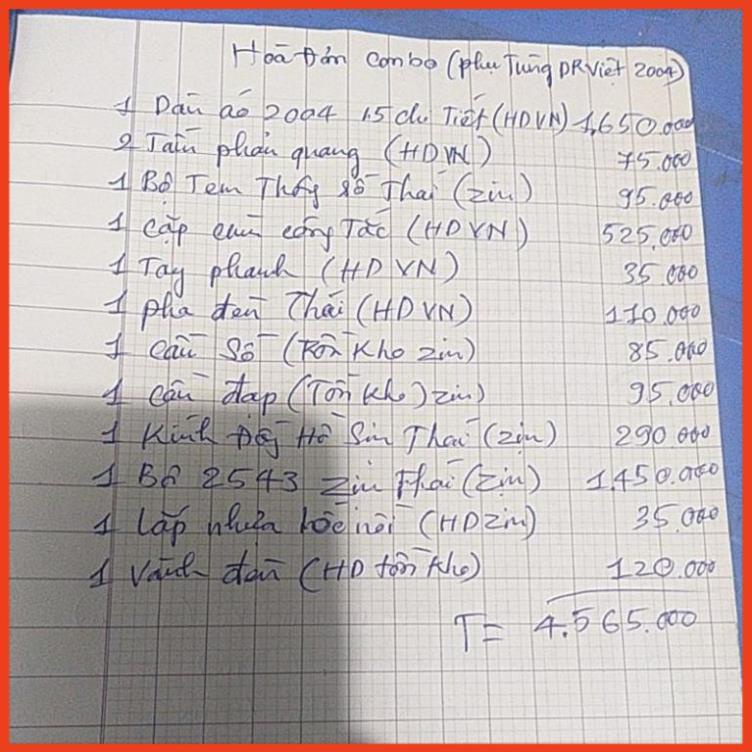 Hoá Đơn combo (phụ Tùng DR Việt 2004)
1 Dàn áo 2004 15 chi Tiết (HDVN) 1,650.000
2 Tấm phản quang (HDVN) 75.000
1 Bộ Tem Thông số Thái (zin) 95.000
1 cặp cùm công Tắc (HDVN) 525.000
1 Tay phanh (HDVN) 35.000
1 pha đèn Thái (HDVN) 110.000
1 cần số (Tồn kho zin) 85.000
1 cần đạp (Tồn kho) zin) 95.000
1 Kính Đồng Hồ Sin Thái (zin) 290.000
1 Bộ 2543 zin Thái (zin) 1.450.000
1 lắp nhựa lốc nồi (HD zin) 35.000
1 Vành đèn (HD tồn kho) 120.000
T = 4.565.000